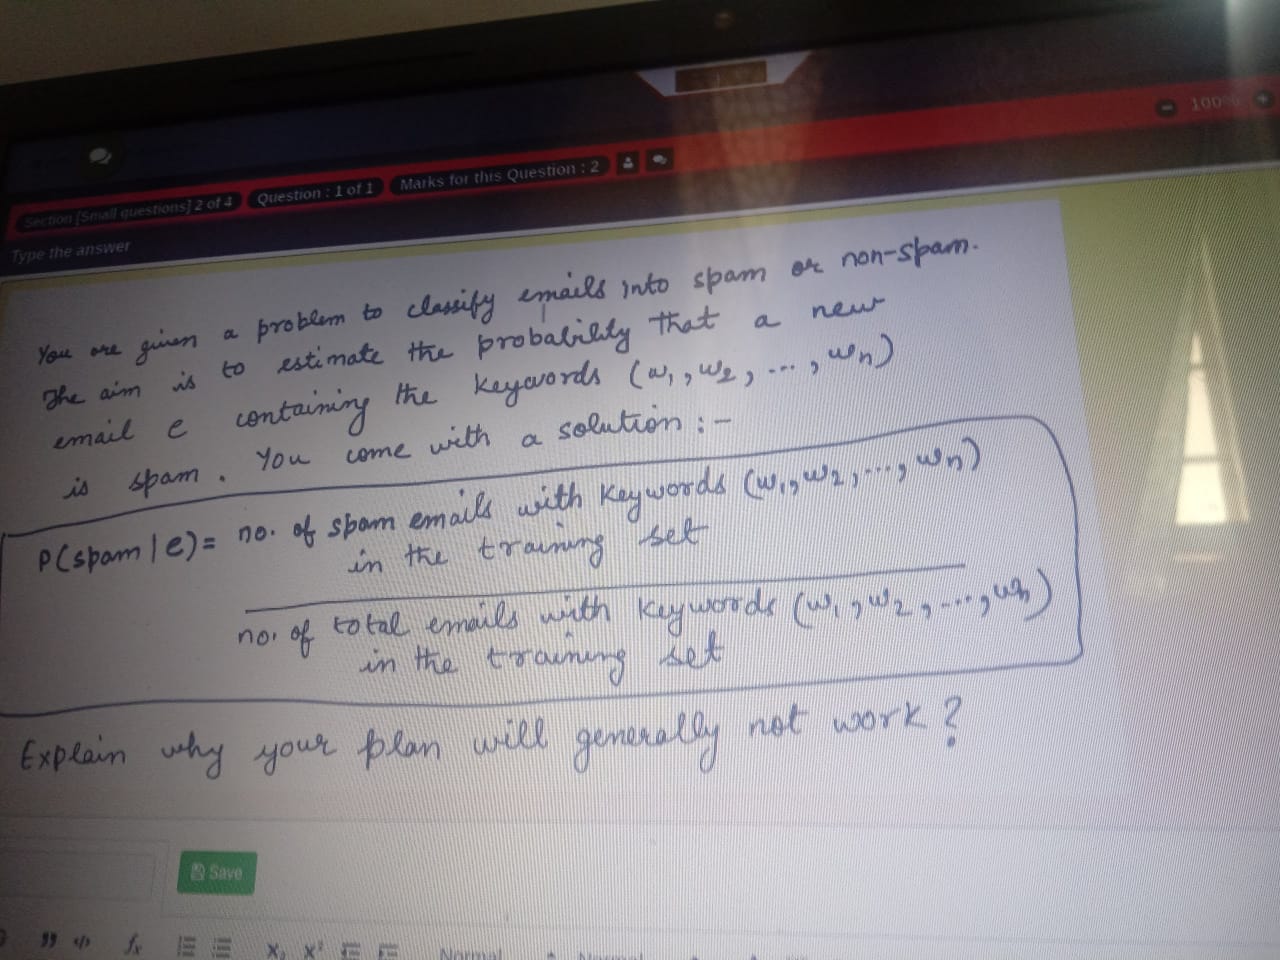 100%
Section [Small questions] 2 of 4 Question : 1 of 1 Marks for this Question : 2
Type the answer
You are given a problem to classify emails into spam or non-spam.
The aim is to estimate the probability that a new
email e containing the keywords (w₁, w₂, ..., wn)
is spam. You come with a solution :-
P(spam | e) = no. of spam emails with keywords (w₁, w₂, ..., wn)
in the training set
no. of total emails with keywords (w₁, w₂, ..., wn)
in the training set
Explain why your plan will generally not work?
Save
Normal